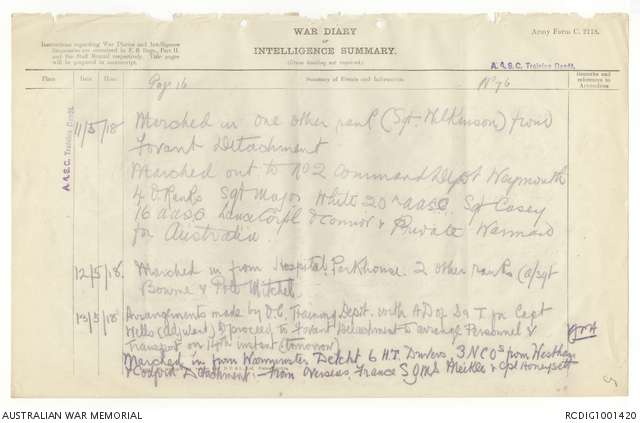 WAR DIARY
or
INTELLIGENCE SUMMARY.
(Erase heading not required).
Army Form C. 2118.
Instructions regarding War Diaries and Intelligence
Summaries are contained in F. S. Regs., Part II.
and the Staff Manual respectively. Title pages
will be prepared in manuscript.
A.A.S.C. Training Depot.
Place Date Hour Summary of Events and Information Remarks and references to Appendices
Page 16 No 76
A.A.S.C. Training Depot.
11/5/18 Marched in one other rank (Sgt. Wilkinson) from
Fovant Detachment
Marched out to No 2 Command Depot Weymouth
4 O Ranks Sgt Major White 20th AASC Sgt Casey
16 AASC Lance Corpl O'Connor & Private
for Australia.
12/5/18. Marched in from Hospital: Parkhouse. 2 other ranks (a/Sgt
Bowne & Mitchell
13/5/18 Arrangements made by O.C. Training Depot. with AD of S & T for Capt
Wells (adjutant) to proceed to Fovant Detachment to arrange Personnel &
Transport on 14th instant (tomorrow)
Marched in from Warminster Detcht 6 H.T. Drivers, 3 NCOs from
& Codford Detachment:- from Overseas, France S Meikle & Cpl Honeysett
5
AUSTRALIAN WAR MEMORIAL
RCDIG1001420